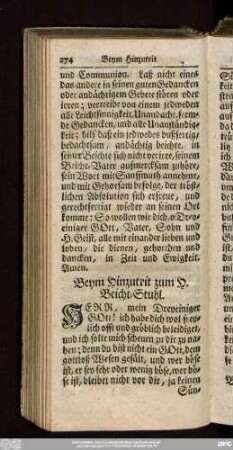 274 Beym Hinzutrit
und Communion. Laß nicht eines
das andere in seinen guten Gedancken
oder andächtigem Gebete stören oder
irren; vertreibe von einem jedweden
alle Leichtsinnigkeit, Unandacht, frem-
de Gedancken, und alle Unanständig-
keit; hilf daß ein jedwedes bußfertig,
bedachtsam, andächtig beichte, in
seiner Beichte sich nicht verirre, seinem
Beicht-Vater aufmercksam zuhöre,
sein Wort mit Sanfftmuth annehme,
und mit Gehorsam befolge, der tröst-
lichen Absolution sich erfreue, und
gerechtfertigt wieder an seinen Ort
komme: So wollen wir dich, o Drey-
einiger GOtt, Vater, Sohn und
H. Geist, alle mit einander lieben und
loben, dir dienen, gehorchen und
dancken, in Zeit und Ewigkeit.
Amen.
Beym Hinzutrit zum H.
Beicht-Stuhl.
HERR, mein Dreyeiniger
GOtt! ich habe dich wol freylich
offt und gröblich beleidiget,
und ich solte mich scheuen zu dir zu na-
hen; denn du bist nicht ein GOtt, dem
gottloß Wesen gefält, und wer böse
ist, er sey sehr oder wenig böse, wer bö-
se ist, bleibet nicht vor dir, ja keinen
Sün-